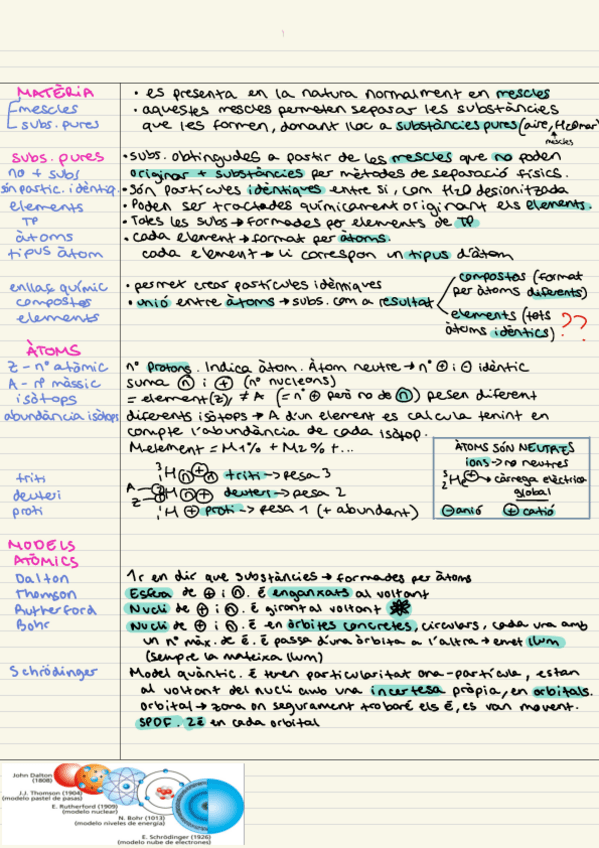 1
MATÈRIA
mescles
subs. pures
• es presenta en la natura normalment en mescles
• aquestes mescles permeten separar les substàncies
que les formen, donant lloc a substàncies pures (aire, H2O mar)
mescles
subs. pures
no + subs
són partíc. idèntiq.
elements
TP
àtoms
tipus àtom
• subs. obtingudes a partir de les mescles que no poden
originar + substàncies per mètodes de separació físics.
• Són partícules idèntiques entre si, com H2O desionitzada
• Poden ser tractades químicament originant els elements.
• Totes les subs → formades per elements de TP
• cada element → format per àtoms.
cada element → li correspon un tipus d'àtom
enllaç químic
compostos
elements
• permet crear partícules idèntiques
• unió entre àtoms → subs. com a resultat
compostos (format
per àtoms diferents)
elements (tots
àtoms idèntics) ??
ÀTOMS
Z - nº atòmic
A - nº màssic
isòtops
abundància isòtops
nº protons. Indica àtom. Àtom neutre → nº ⊕ i ⊖ idèntic
suma n i + (nº nucleons)
= element (z), ≠ A (= nº ⊕ però no de n) pesen diferent
diferents isòtops → A d'un element es calcula tenint en
compte l'abundància de cada isòtop.
M element = M1% + M2% + ...
triti
deuteri
proti
3 1 H n + n triti → pesa 3
A Z 2 1 H n + deuteri → pesa 2
1 1 H + proti → pesa 1 (+ abundant)
ÀTOMS SÓN NEUTRES
ions → no neutres
3 2 He + → càrrega elèctrica
global
⊖ anió ⊕ catió
MODELS
ATÒMICS
Dalton
Thomson
Rutherford
Bohr
1r en dir que substàncies → formades per àtoms
Esfera de ⊕ i n. ē enganxats al voltant
Nucli de ⊕ i n. ē girant al voltant
Nucli de ⊕ i n. ē en òrbites concretes, circulars, cada una amb
un nº màx. de ē. ē passa d'una òrbita a l'altra → emet llum
(sempre la mateixa llum)
Schrödinger
Model quàntic. ē tenen particularitat ona-partícula, estan
al voltant del nucli amb una incertesa pròpia, en orbitals.
orbital → zona on segurament trobaré els ē, es van movent.
SPDF. 2ē en cada orbital
John Dalton
(1808)
J.J. Thomson (1904)
(modelo pastel de pasas)
E. Rutherford (1909)
(modelo nuclear)
N. Bohr (1013)
(modelo niveles de energía)
E. Schrödinger (1926)
(modelo nube de electrones)